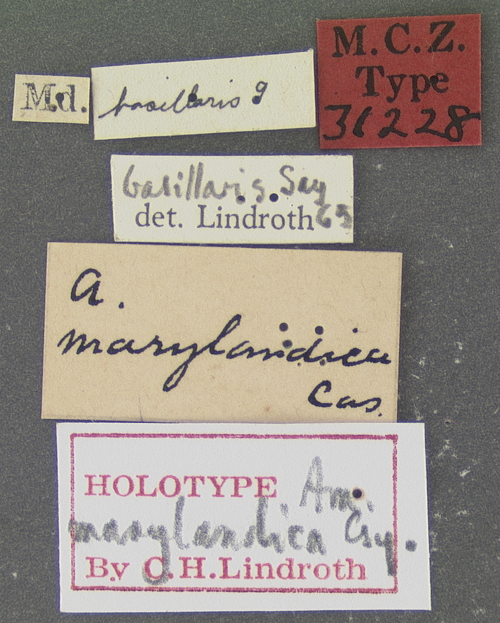 Md.
basillaris 9
M.C.Z.
Type
31228
basillaris Say
det. Lindroth 65
a.
marylandica
Cas.
HOLOTYPE Am.
marylandica Csy.
By C.H.Lindroth